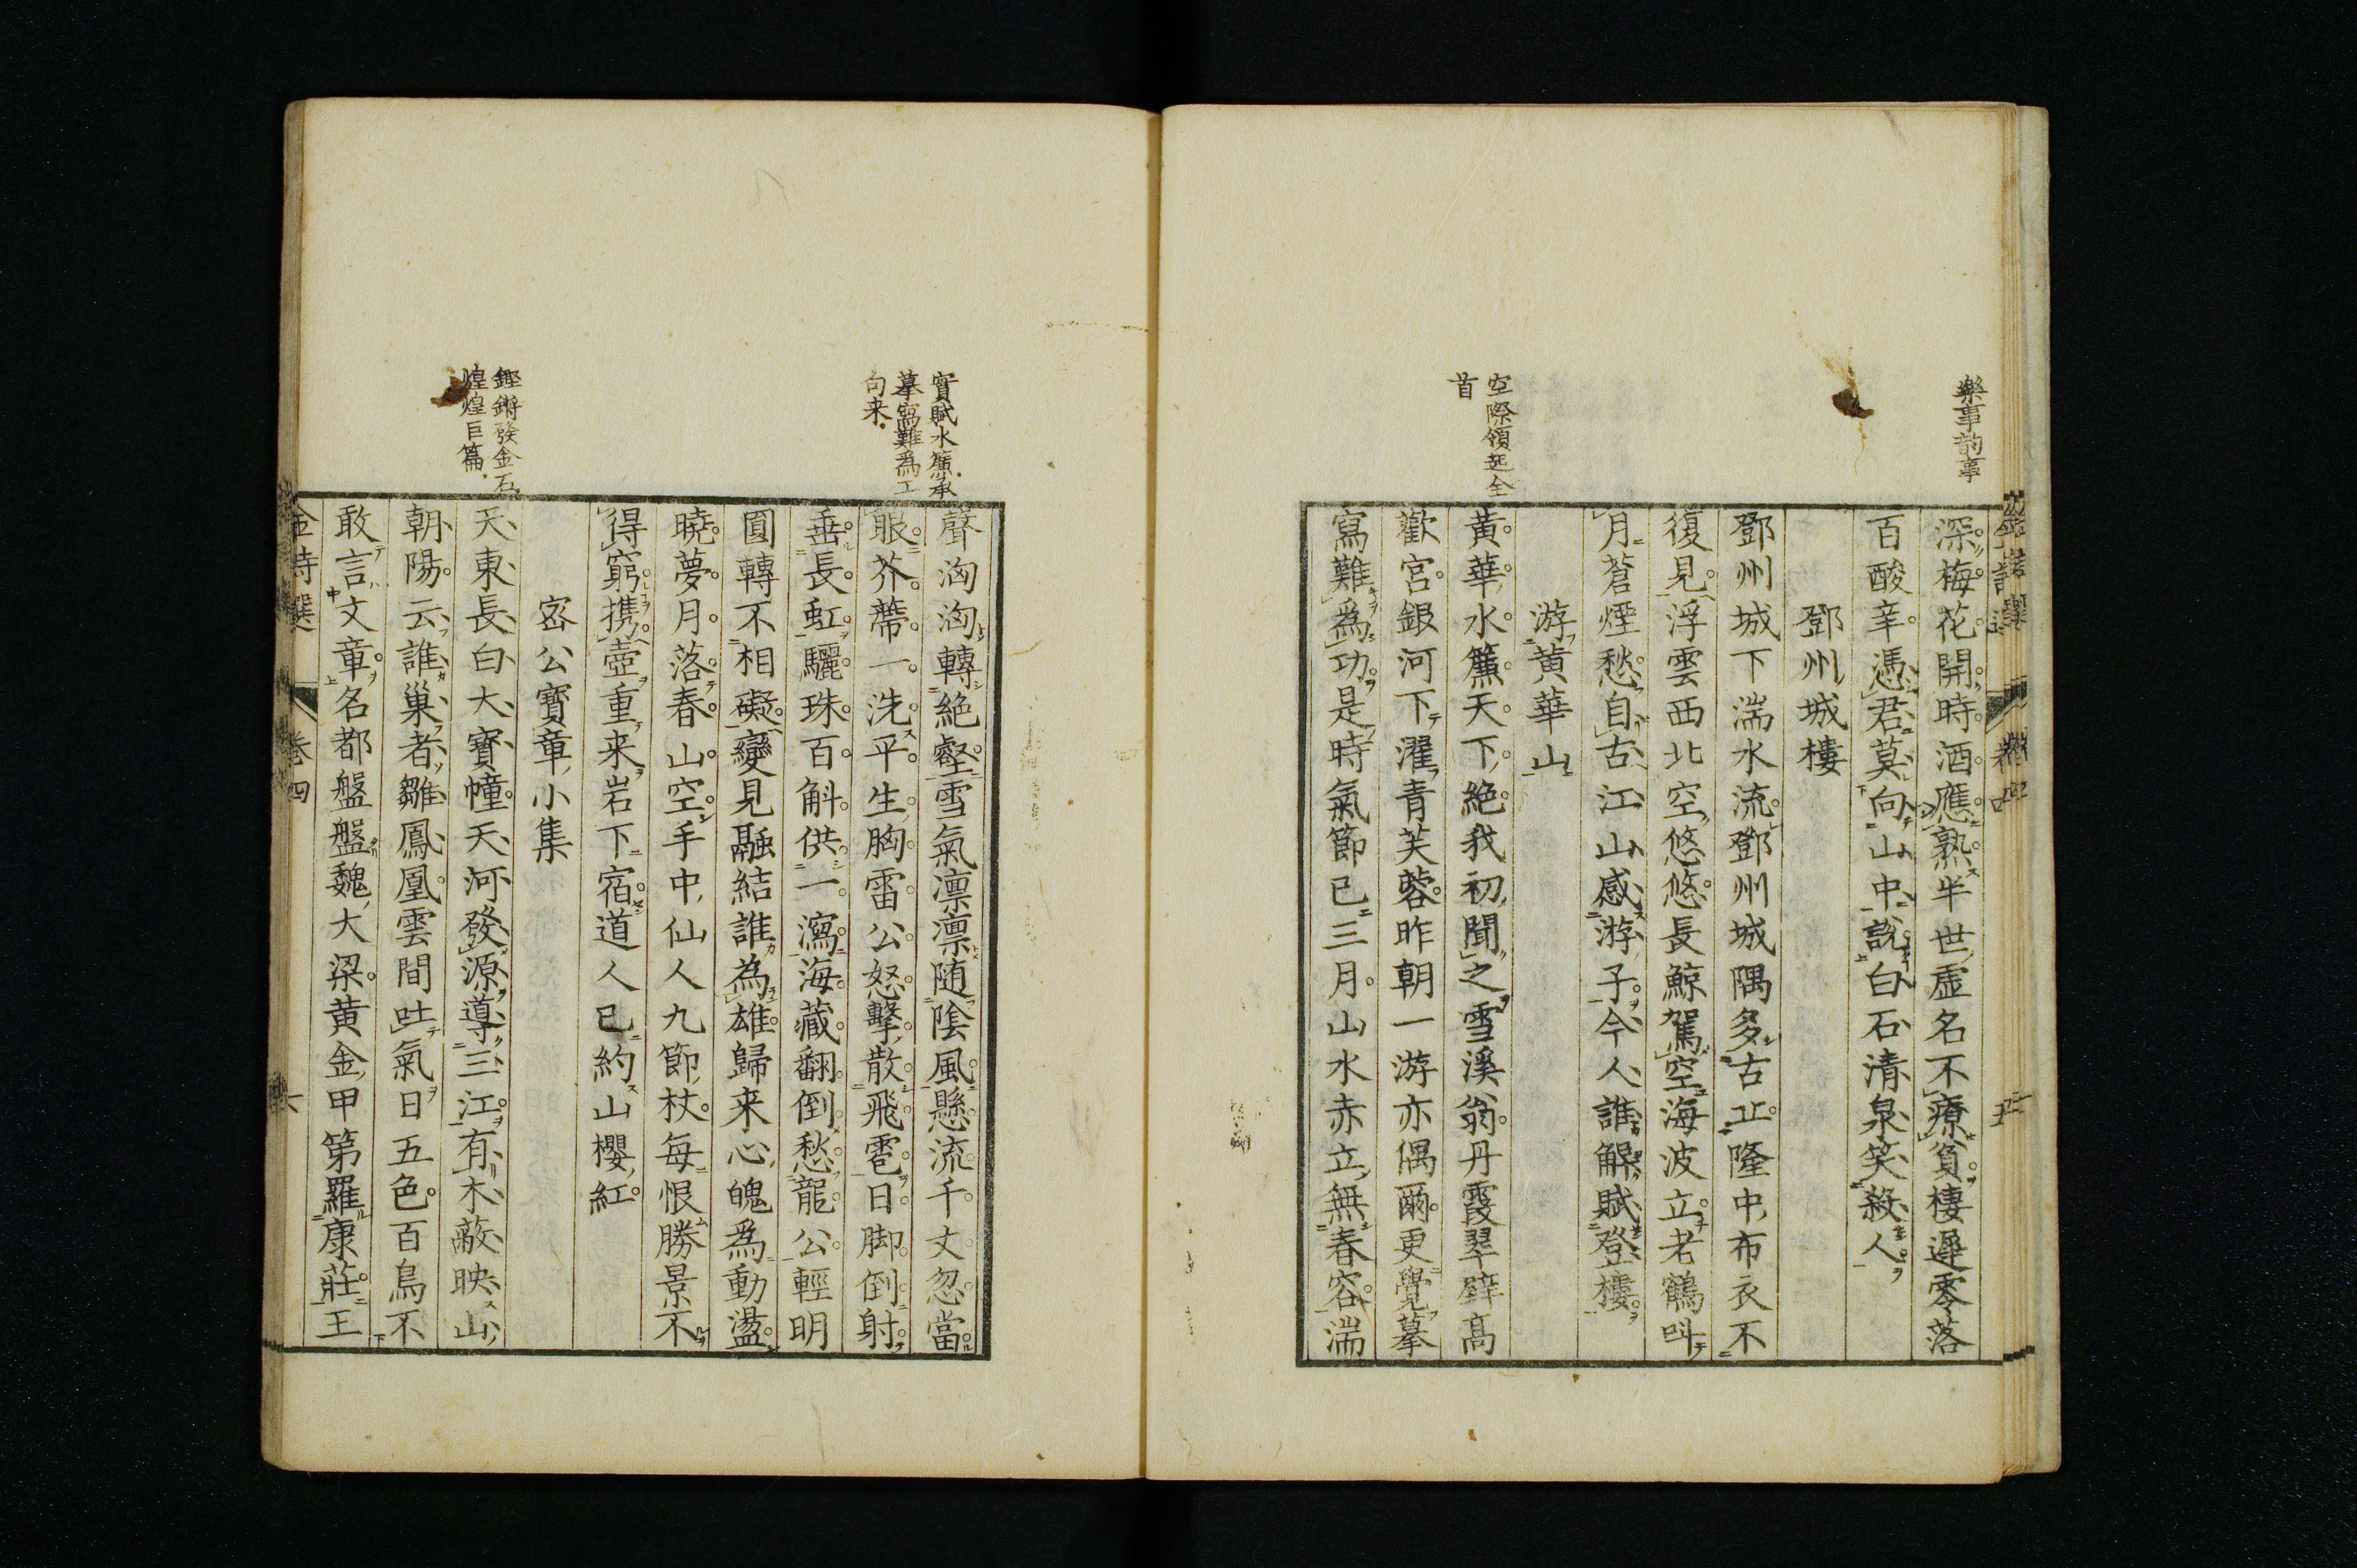 樂事韵事
深梅花開時酒應熟半世虛名不療貧棲遲零落
百酸辛憑君莫向山中說白石清泉笑殺人
鄧州城樓
鄧州城下湍水流鄧州城隅多古丘隆中布衣不
復見浮雲西北空悠悠長鯨駕空海波立老鶴叫
月蒼煙愁自古江山感游子今人誰解賦登樓
游黄華山
空際領起全
首
黄華水簾天下絶我初聞之雪溪翁丹霞翠壁髙
歡宮銀河下濯青芙蓉昨朝一游亦偶爾更覺摹
寫難為功是時氣節已三月山水赤立無春容湍
實賦水簾承
摹寫難爲工
句来
聲洶洶轉絶壑雪氣凛凛随陰風懸流千丈忽當
眼芥蔕一洗平生胸雷公怒擊散飛雹日脚倒射
垂長虹驪珠百斛供一瀉海藏翻倒愁龍公輕明
圓轉不相礙變見融結誰為雄歸来心魄爲動盪
曉夢月落春山空手中仙人九節杖每恨勝景不
得窮携壺重来岩下宿道人已約山櫻紅
密公寶章小集
鏗鏘發金石
煌煌巨篇
天東長白大寶幢天河發源導三江有木蔽映山
朝陽云誰巢者雛鳳凰雲間吐氣日五色百鳥不
敢言文章名都盤盤魏大梁黄金甲第羅康莊王
金詩選
卷四
六